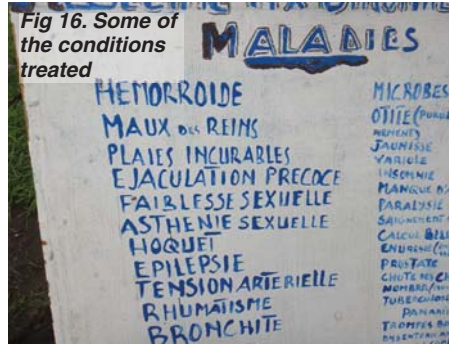 Fig 16. Some of
the conditions
treated
MALADIES
HEMORROIDE
MAUX DES REINS
PLAIES INCURABLES
EJACULATION PRECOCE
FAIBLESSE SEXUELLE
ASTHENIE SEXUELLE
HOQUET
EPILEPSIE
TENSION ARTERIELLE
RHUMATISME
BRONCHITE
MICROBES
OTITE
JAUNISSE
VARIOLE
INSOMNIE
MANQUE
PARALYSIE
CALCUL
PROSTATE
CHUTE
PANARI
TROMPES